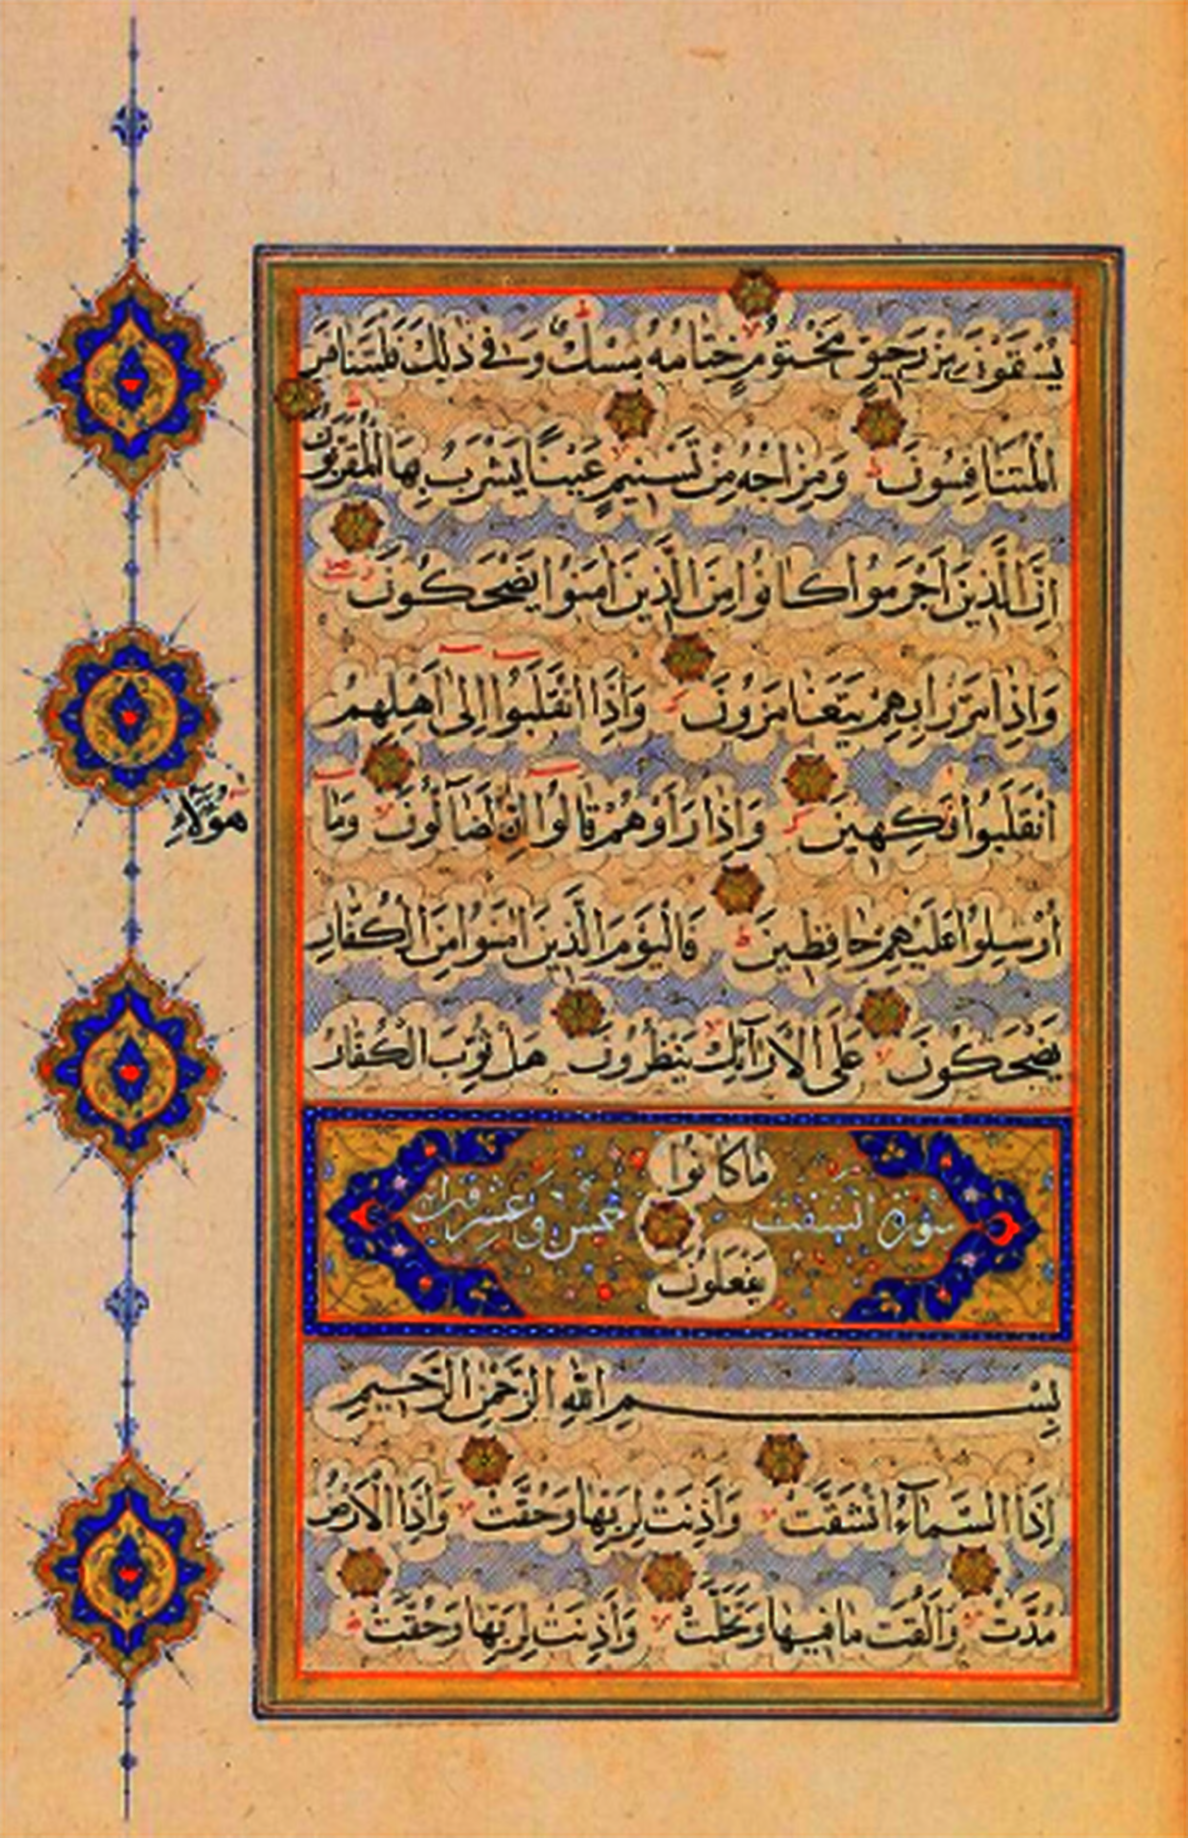 يُسْقَوْنَ مِنْ رَحِيقٍ مَخْتُومٍ خِتَامُهُ مِسْكٌ وَفِي ذٰلِكَ فَلْيَتَنَافَسِ
الْمُتَنَافِسُونَ وَمِزَاجُهُ مِنْ تَسْنِيمٍ عَيْنًا يَشْرَبُ بِهَا الْمُقَرَّبُونَ
اِنَّ الَّذِينَ اَجْرَمُوا كَانُوا مِنَ الَّذِينَ اٰمَنُوا يَضْحَكُونَ
وَاِذَا مَرُّوا بِهِمْ يَتَغَامَزُونَ وَاِذَا انْقَلَبُوا اِلٰى اَهْلِهِمُ
انْقَلَبُوا فَكِهِينَ وَاِذَا رَاَوْهُمْ قَالُوا اِنَّ لَضَالُّونَ وَمَا
هٰؤُلَاءِ
اُرْسِلُوا عَلَيْهِمْ حَافِظِينَ فَالْيَوْمَ الَّذِينَ اٰمَنُوا مِنَ الْكُفَّارِ
يَضْحَكُونَ عَلَى الْاَرَآئِكِ يَنْظُرُونَ هَلْ ثُوِّبَ الْكُفَّارُ
مَا كَانُوا
سورة انشقت خمس وعشر
يَفْعَلُونَ
بِسْمِ اللّٰهِ الرَّحْمٰنِ الرَّحِيمِ
اِذَا السَّمَآءُ انْشَقَّتْ وَاَذِنَتْ لِرَبِّهَا وَحُقَّتْ وَاِذَا الْاَرْضُ
مُدَّتْ وَاَلْقَتْ مَا فِيهَا وَتَخَلَّتْ وَاَذِنَتْ لِرَبِّهَا وَحُقَّتْ